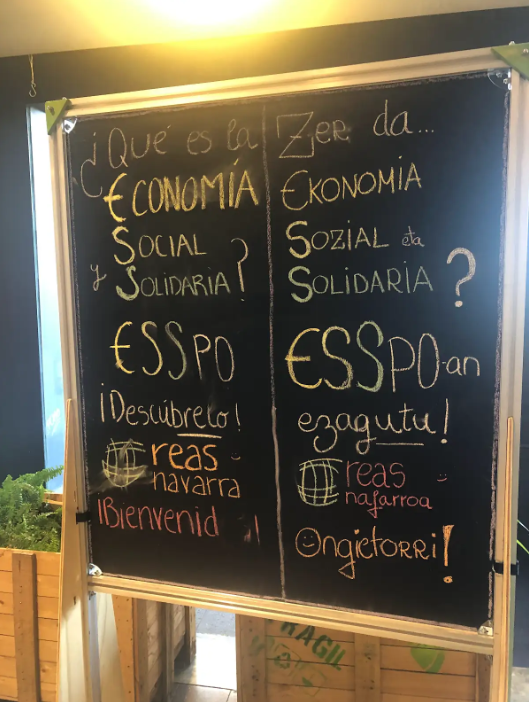 ¿Qué es la
ECONOMÍA
SOCIAL
y SOLIDARIA?
ESSPO
¡Descúbrelo!
reas
navarra
¡Bienvenid !
Zer da...
EKONOMIA
SOZIAL eta
SOLIDARIA?
ESSPO-an
ezagutu!
reas
nafarroa
Ongietorri!
FRAGIL